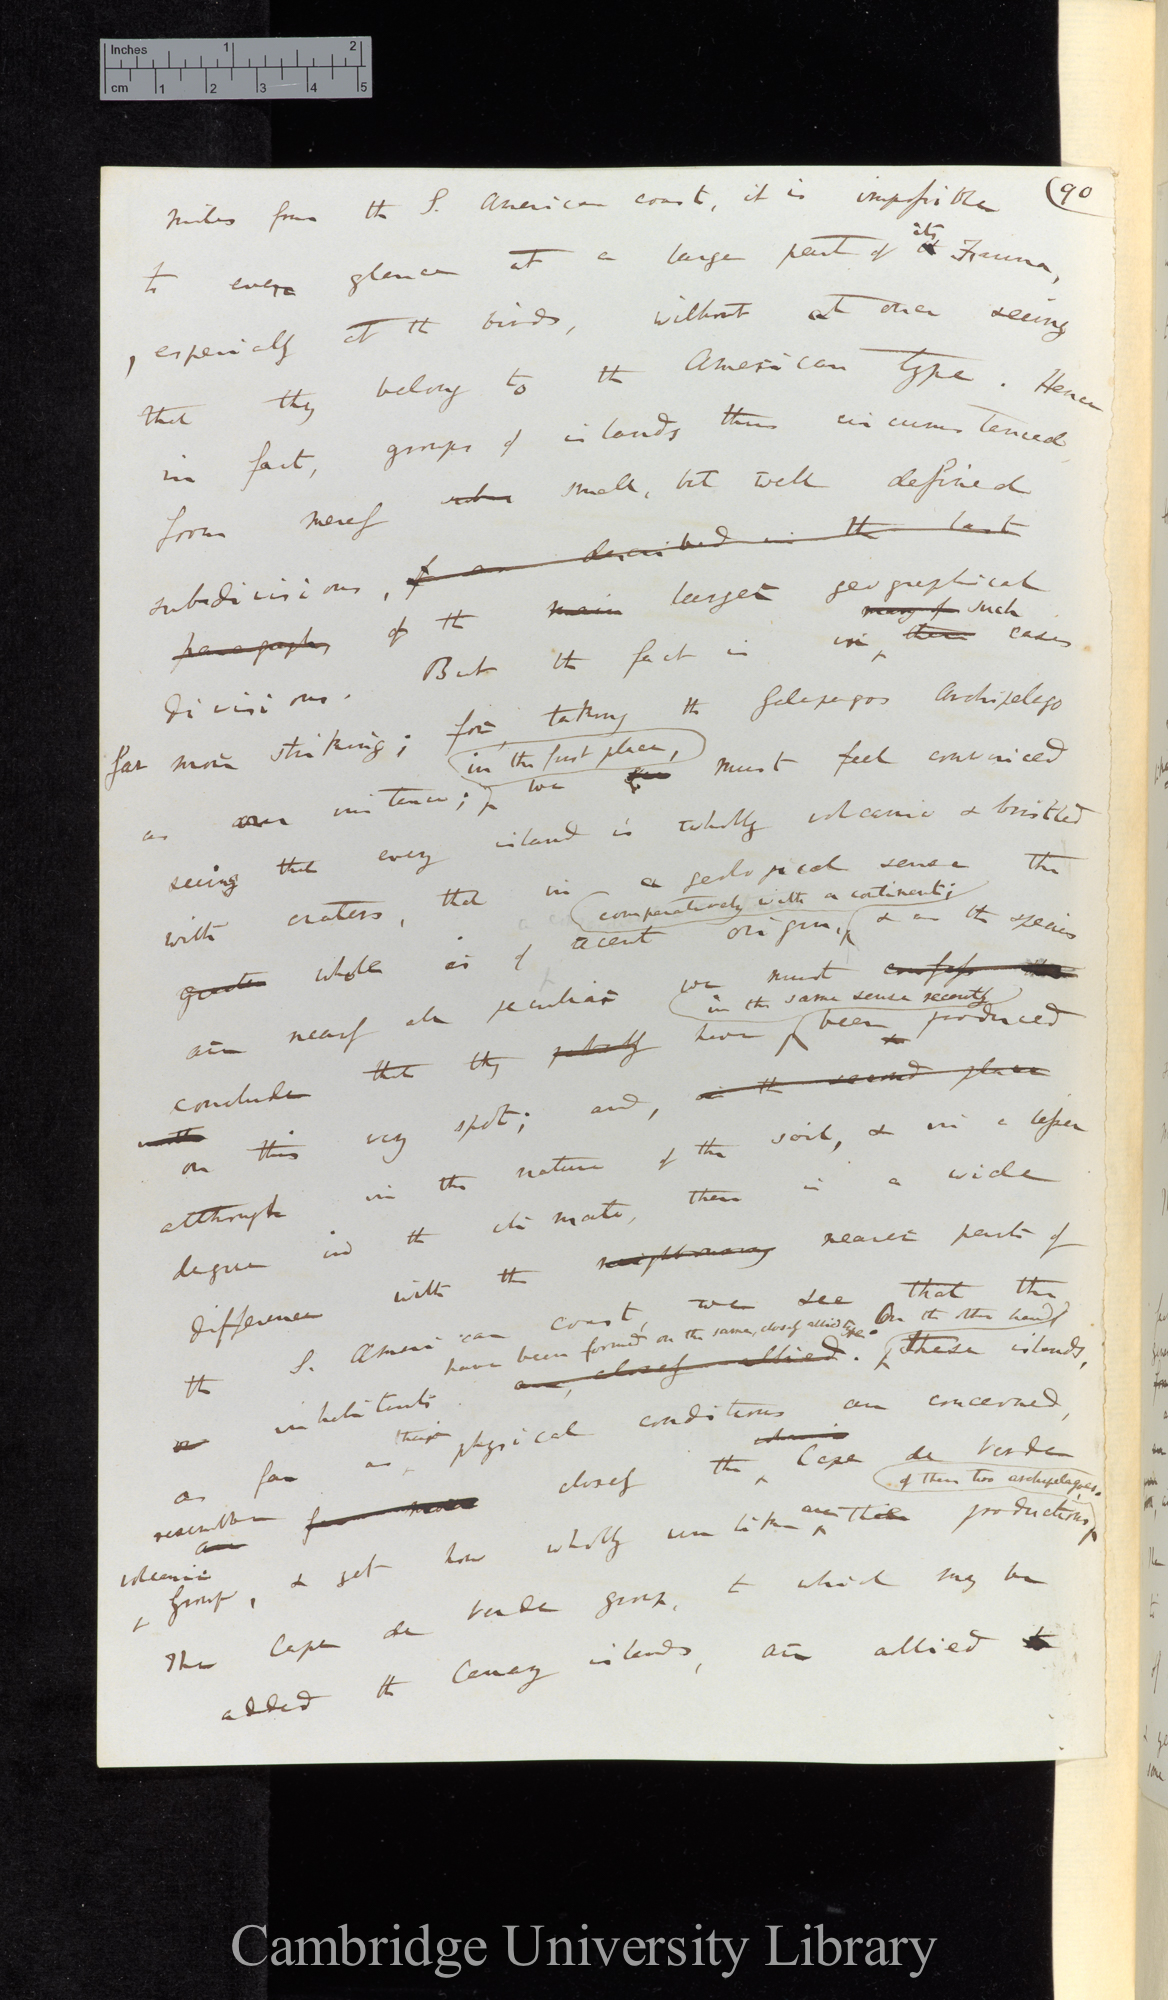 Inches 1 2
cm 1 2 3 4 5
(90
miles from the S. American coast, it is impossible
to even glance at a large part of its Fauna,
, especially at the birds, without at once seeing
that they belong to the American type. Hence
in fact, groups of islands thus circumstanced
form merely small, but well defined
subdivisions, I am described in the last
paragraph, of the main larger geographical
many of such
divisions. But the fact is in these cases
far more striking; for, taking the Galapagos Archipelago
in the first place,
as our instance; we must feel convinced
seeing that every island is wholly volcanic & bristled
with craters, that in a geological sense the
comparatively with a continent;
greater whole is of recent origin, & as the species
are nearly all peculiar we must confess
in the same sense recently
conclude that they probably have been produced
on this very spot; and, in the second place
although in the nature of the soil, & in a lesser
degree in the climate, there is a wide
difference with the neighbouring nearest part of
the S. American coast, we see that the
have been formed on the same, closely allied type. On the other hand
inhabitants are, closely allied. these islands,
as far as their physical conditions are concerned,
resemble closely the Cape de Verde
of these two archipelagoes.
volcanic
Group, & yet how wholly unlike are their productions
The Cape de Verde group, to which may be
added the Canary islands, are allied to
Cambridge University Library